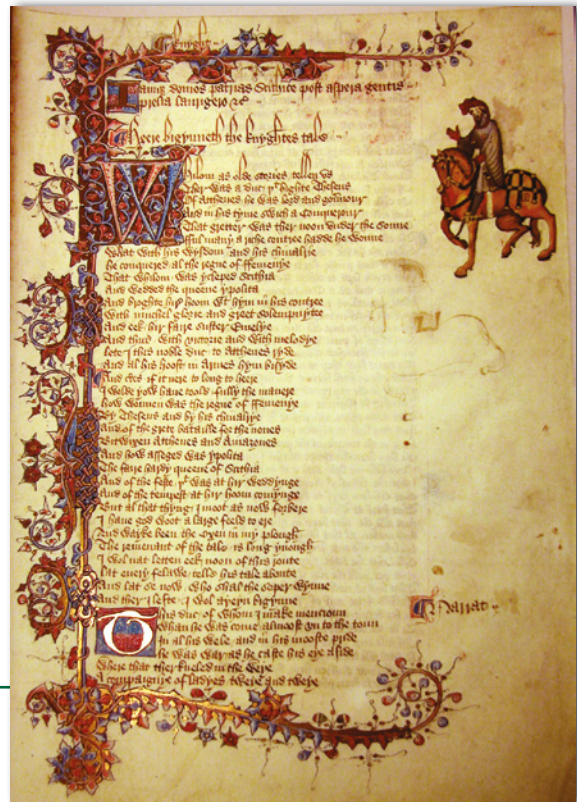 knyght
Iamque domos patrias Scithice post aspera gentis
prelia laurigero &c
Heere bigynneth the knyghtes tale
Whilom as olde stories tellen vs
Ther was a duc þt highte Theseus
Of atthenes he was lord and gouernour
And in his tyme swich a Conquerour
That gretter was ther noon vnder the sonne
fful many a riche contree hadde he wonne
What with his wysdom and his chiualrie
he conquered al the regne of ffemenye
That whilom was ycleped Scithia
And wedded the queene ypolita
And broghte hire hoom with hym in his contree
With muchel glorie and greet solempnytee
And eek hir faire suster Emelye
And thus with victorie and with melodye
lete I this noble duc to atthenes ryde
And al his hoost in Armes hym bisyde
And certes if it nere to long to heere
I wolde yow haue toold fully the manere
how wonnen was the regne of ffemenye
By Theseus and by his chiualrye
And of the grete bataille for the nones
Bitwixen atthenes and Amazones
And how asseged was ypolita
The faire hardy queene of Scithia
And of the feste þt was at hir weddynge
And of the tempest at hir hoom comynge
But al that thyng I moot as now forbere
I haue god woot a large feeld to ere
And wayke been the oxen in my plough
The remenant of the tale is long ynough
I wol nat letten eek noon of this route
lat euery felawe telle his tale aboute
And lat se now who shal the soper wynne
And ther I lefte I wol ayeyn bigynne
This duc of whom I make mencioun
Whan he was come almoost vn to the toun
In al his wele and in his mooste pride
he was war as he caste his eye aside
Where that ther kneled in the weye
A compaignye of ladyes tweye and tweye
Narrat